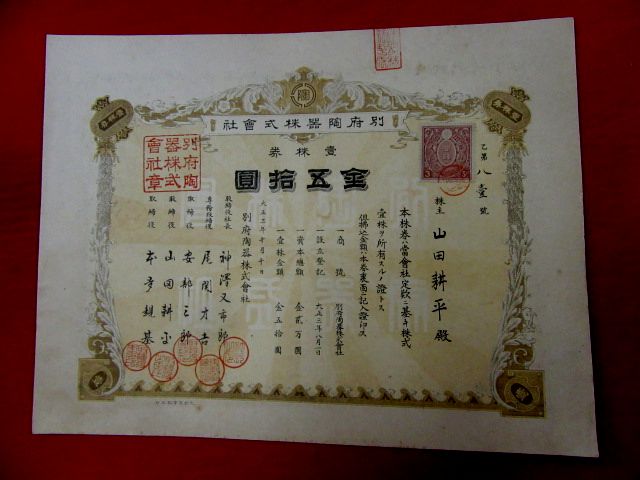 別府陶器株式會社
壹株券
金五拾圓
乙第八壹號
株主 山田耕平殿
本株券ハ當會社定款ニ基キ株式
壹株ヲ所有スルノ證トス
但拂込金額ハ本券裏面ニ記入證印ス
一商號 別府陶器株式會社
一設立登記 大正三年八月一日
一資本總額 金貳万圓
一壹株金額 金五拾圓
大正三年十月十日
別府陶器株式會社
取締役社長 神澤又市郎
專務取締役 尾関才吉
取締役 安部三郎
取締役 山田耕平
取締役
別府陶
器株式
會社章